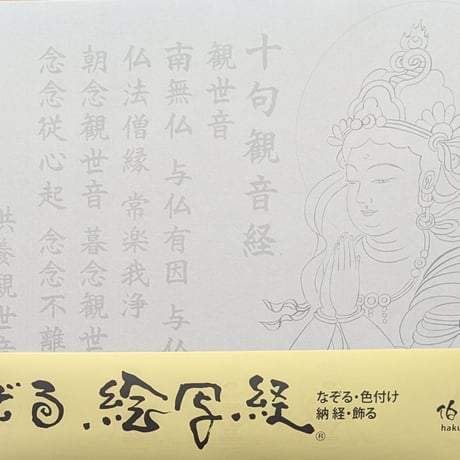 十句観音経
観世音
南無仏 与仏有因 与仏
仏法僧縁 常楽我浄
朝念観世音 暮念観世
念念従心起 念念不離
供養観世音
ぞる 絵写経®
なぞる・色付け
納経・飾る
伯
haku